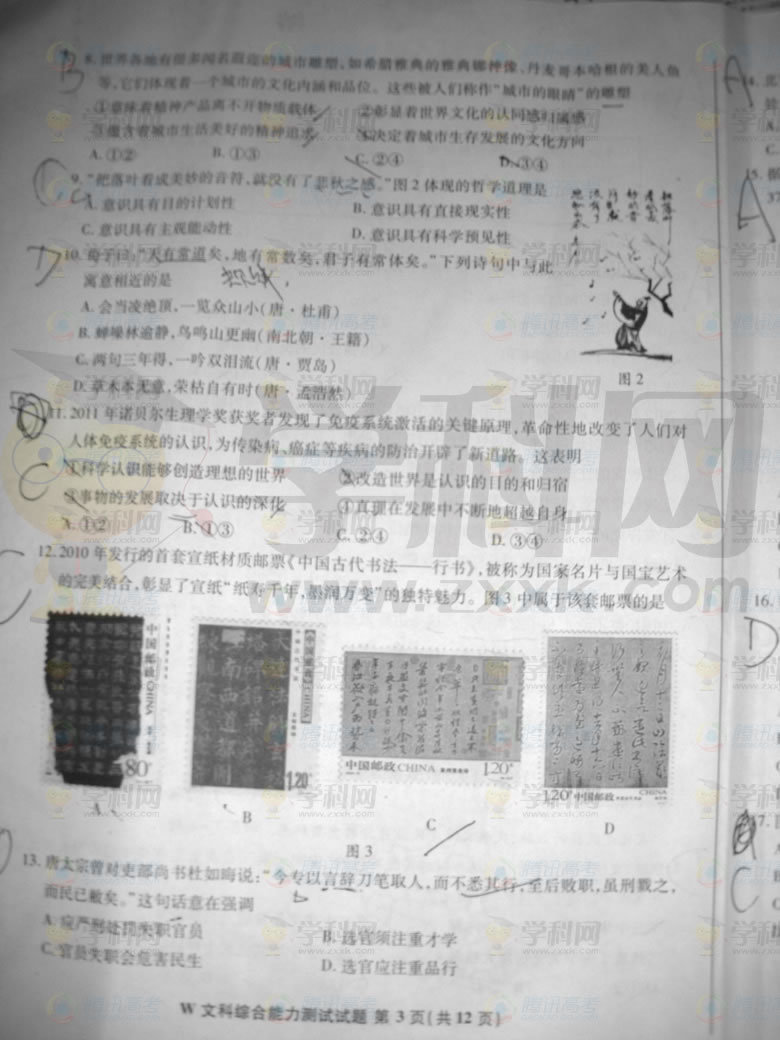 8. 世界各地有很多闻名遐迩的城市雕塑,如希腊雅典的雅典娜神像、丹麦哥本哈根的美人鱼
等,它们体现着一个城市的文化内涵和品位。这些被人们称作“城市的眼睛”的雕塑
①意味着精神产品离不开物质载体 ②彰显着世界文化的认同感归属感
③蕴含着城市生活美好的精神追求 ④决定着城市生存发展的文化方向
A. ①② B. ①③ C. ②④ D. ③④
9. “把落叶看成美妙的音符,就没有了悲秋之感。”图2体现的哲学道理是
A. 意识具有目的计划性 B. 意识具有直接现实性
C. 意识具有主观能动性 D. 意识具有科学预见性
10. 荀子曰:“天有常道矣,地有常数矣,君子有常体矣。”下列诗句中与此
寓意相近的是
A. 会当凌绝顶,一览众山小(唐·杜甫)
B. 蝉噪林逾静,鸟鸣山更幽(南北朝·王籍)
C. 两句三年得,一吟双泪流(唐·贾岛)
D. 草木本无意,荣枯自有时(唐·孟浩然)
图2
11. 2011年诺贝尔生理学奖获奖者发现了免疫系统激活的关键原理,革命性地改变了人们对
人体免疫系统的认识,为传染病、癌症等疾病的防治开辟了新道路。这表明
①科学认识能够创造理想的世界 ②改造世界是认识的目的和归宿
③事物的发展取决于认识的深化 ④真理在发展中不断地超越自身
A. ①② B. ①③ C. ②④ D. ③④
12. 2010年发行的首套宣纸材质邮票《中国古代书法——行书》,被称为国家名片与国宝艺术
的完美结合,彰显了宣纸“纸寿千年,墨润万变”的独特魅力。图3中属于该套邮票的是
中国邮政 CHINA
80
1.20
中国邮政 CHINA 1.20
1.20 中国邮政 CHINA
A B C D
图3
13. 唐太宗曾对吏部尚书杜如晦说:“今专以言辞刀笔取人,而不悉其行,至后败职,虽刑戮之,
而民已敝矣。”这句话意在强调
A. 应严刑处罚失职官员 B. 选官须注重才学
C. 官员失职会危害民生 D. 选官应注重品行
W 文科综合能力测试试题 第3页(共12页)
学科网
www.zxxk.com
腾讯高考